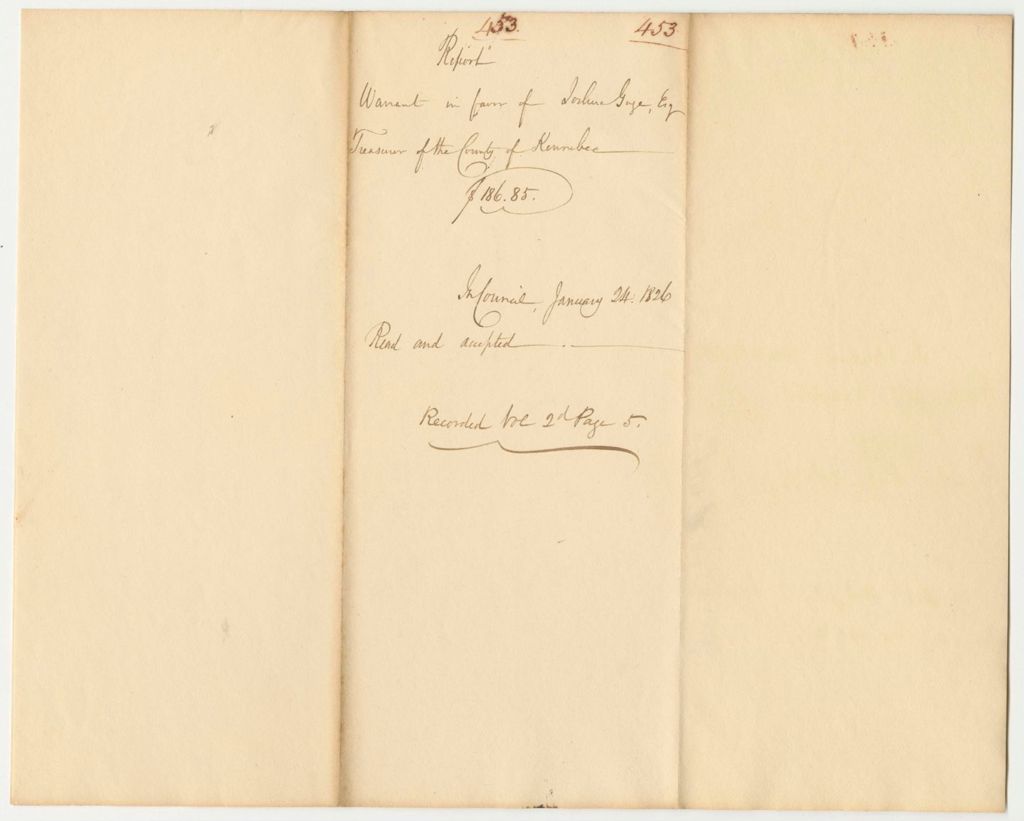 453. 453
Report
Warrant in favor of Joshua Gage, Esq
Treasurer of the County of Kennebec
$186.85.
In Council, January 24. 1826
Read and accepted
Recorded Vol 2d Page 5.